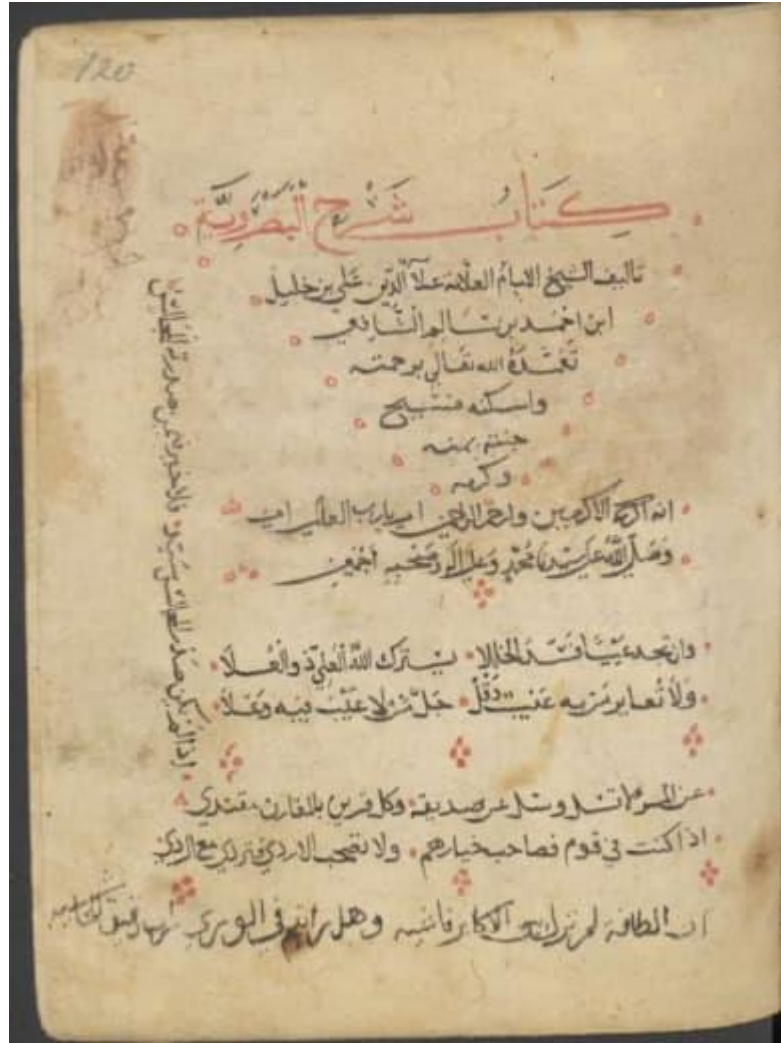 120
كتاب شرح البصروية
تاليف الشيخ الامام العلامة علاء الدين علي بن خليل
ابن احمد بن سالم الشافعي
تغمده الله تعالى برحمته
واسكنه فسيح
جنته بمنه
وكرمه
انه اكرم الاكرمين وارحم الراحمين امين يارب العالمين امين
وصلى الله على سيدنا محمد وعلى اله وصحبه اجمعين
وان تجد عيبا فسد الخللا يسترك الله العلي ذو العلا
ولا تعاير من به عيب وقل جل من لا عيب فيه وعلا
عن المرء لا تسل وسل عن صديقه وكل قرين بالمقارن يقتدي
اذا كنت في قوم فصاحب خيارهم ولا تصحب الاردى فتردى مع الردي
ان الطافة لم تزل الاكابر وهل رايتم في الورى
اذا لم يكن صدر المجالس سيد فلا خير فيمن صدرته المجالس